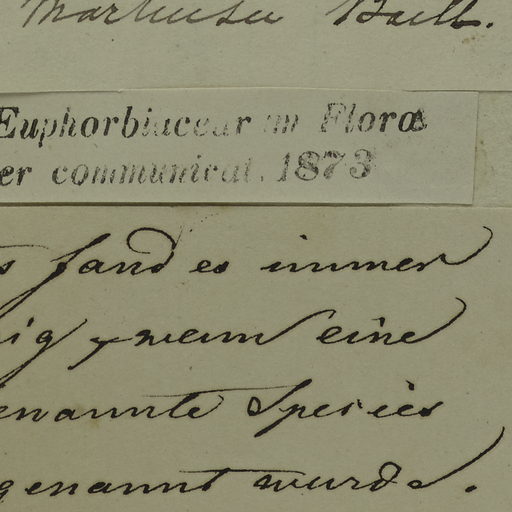 Martiusii Baill.
Euphorbiacearum Floræ
er communicat. 1873
s fand es immer
ig, wenn eine
enannte Species
genannt wurde.